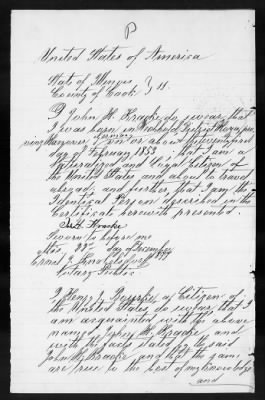 P
United States of America
State of Illinois
County of Cook } ss.
I John H. Kracke do swear, that
I was born in
Hanover Germany on or about the twenty first
day of February 1853 that I am a
Naturalized and Legal Citizen of
the United States, and about to travel
abroad; and further, that I am the
Identical Person described in the
Certificate herewith presented.
J. H. Kracke
Sworn to before me
this 23d day of December
Ernst J.
Notary Public
I Henry a Citizen of
the United States do swear, that I
am acquainted with the above
named John H. Kracke and
with the facts stated by the said
John H. Kracke and that the same
are true to the best of my knowledge
and